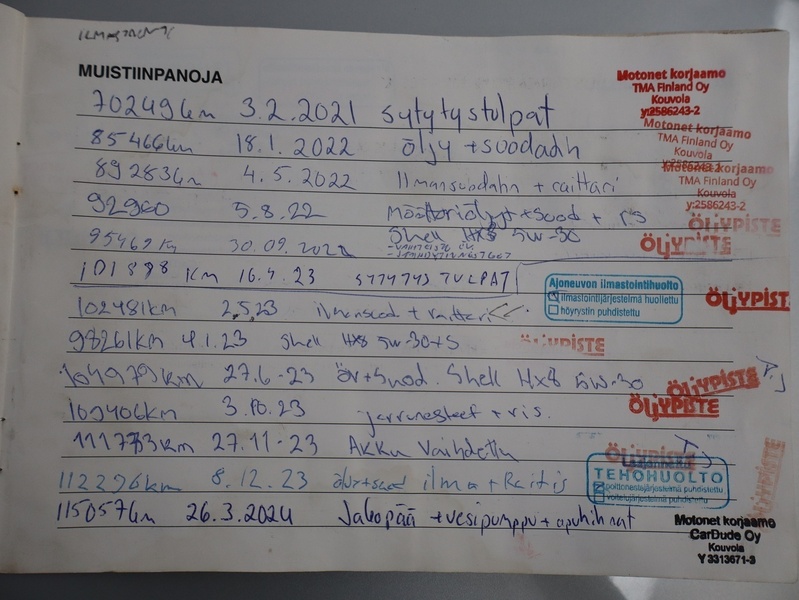 ILMASTOINTI
MUISTIINPANOJA
70249km 3.2.2021 sytytystulpat
85466km 18.1.2022 öljy + suodath
89283km 4.5.2022 Ilmansuodahn + raittari
92960 5.8.22 Moottoriöljyt + suod + ris
95469 Km 30.09.2022 Shell HX8 5W-30
101898 KM 16.4.23 SYTYTYSTULPAT
102481km 2.5.23 ilmansuod + raittari
98261km 4.1.23 Shell HX8 5W-30+S
104979km 27.6-23 öv+suod. Shell HX8 5W-30
109406km 3.10.23 jarrunesteet + ris.
111773km 27.11-23 Akku Vaihdettu
112296km 8.12.23 ilma + Raitis
115057km 26.3.2024 Jakopää + vesipumppu + apuhihnat
Motonet korjaamo
TMA Finland Oy
Kouvola
y:2586243-2
Motonet korjaamo
TMA Finland Oy
Kouvola
y:2586243-2
Motonet korjaamo
TMA Finland Oy
Kouvola
y:2586243-2
ÖLJYPISTE
ÖLJYPISTE
Ajoneuvon ilmastointihuolto
ilmastointijärjestelmä huollettu
höyrystin puhdistettu
ÖLJYPISTE
ÖLJYPISTE
ÖLJYPISTE
ÖLJYPISTE
T.J
ÖLJYPISTE
TEHOHUOLTO
polttonestejärjestelmä puhdistettu
voitelujärjestelmä puhdistettu
ÖLJYPISTE
Motonet korjaamo
CarDude Oy
Kouvola
Y 3313671-3